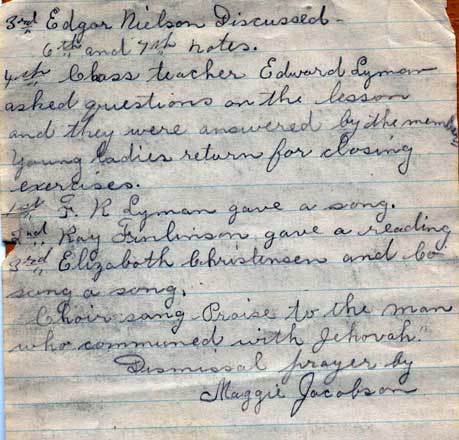 3rd Edgar Nielson Discussed -
6th and 7th notes.
4th Class teacher Edward Lyman
asked questions on the lesson
and they were answered by the members
Young ladies return for closing
exercises.
1st F. R Lyman gave a song.
2nd Ray Finlinson gave a reading
3rd Elizabeth Christensen and Co
sang a song.
Choir sang Praise to the man
who communed with Jehovah."
Dismissal prayer by
Maggie Jacobson